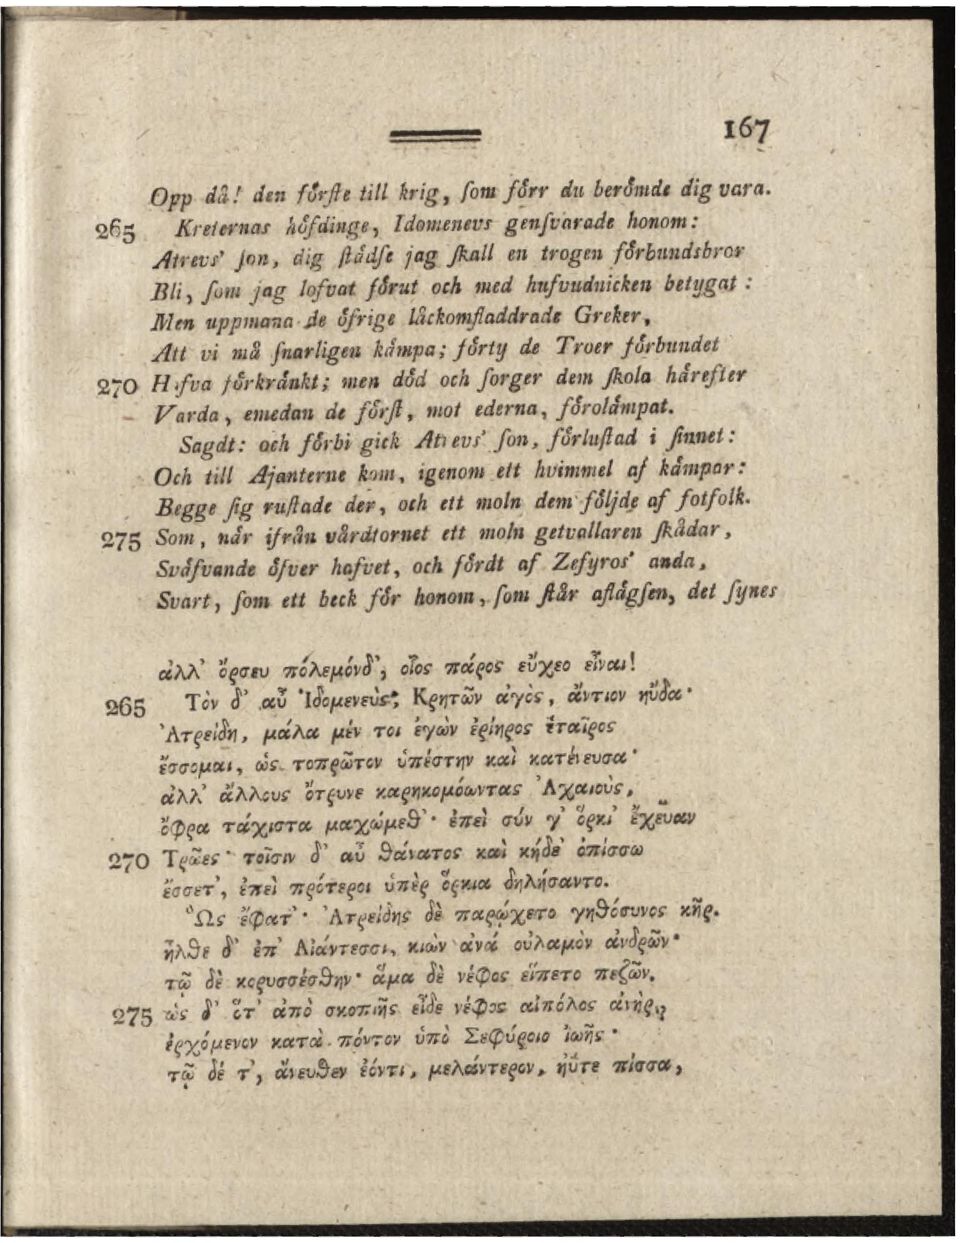 167
Opp då! den förste till krig, som förr du berömde dig vara.
265 Kreternas höfdinge, Idomenevs genſvarade honom:
Atrevs' ſon, dig ſtädſe jag ſkall en trogen förbundsbror
Bli, ſom jag lofvat förut och med hufvudnicken betygat:
Men uppmana de öfrige läckomfladdrade Greker,
Att vi må ſnarligen kämpa; förty de Troer förbundet
270 Hafva förkränkt; men död och ſorger dem ſkola härefter
Varda, emedan de förſt, mot ederna, förolämpat.
Sagdt: och förbi gick Atrevs' ſon, förluſtad i ſinnet:
Och till Ajanterne kom, igenom ett hvimmel af kämpar:
Begge ſig ruſtade der, och ett moln dem följde af fotfolk.
275 Som, när ifrån vårdtornet ett moln getvallaren ſkådar,
Sväfvande öfver hafvet, och fördt af Zefyros' anda,
Svart, ſom ett beck för honom, ſom ſtår aflägſen, det ſynes
ἀλλ' ὄρσευ πόλεμόνδ', οἷος πάρος εὔχεο εἶναι!
265 Τὸν δ' αὖ Ἰδομενεὺς, Κρητῶν ἀγὸς, ἄντιον ηὔδα·
Ἀτρείδη, μάλα μέν τοι ἐγὼν ἐρίηρος ἑταῖρος
ἔσσομαι, ὡς τοπρῶτον ὑπέστην καὶ κατένευσα·
ἀλλ' ἄλλους ὄτρυνε καρηκομόωντας Ἀχαιοὺς,
ὄφρα τάχιστα μαχώμεθ'· ἐπεὶ σύν γ' ὅρκι' ἔχευαν
270 Τρῶες· τοῖσιν δ' αὖ θάνατος καὶ κήδε' ὀπίσσω
ἔσσετ', ἐπεὶ πρότεροι ὑπὲρ ὅρκια δηλήσαντο.
Ὣς ἔφατ'· Ἀτρείδης δὲ παρῴχετο γηθόσυνος κῆρ.
ἦλθε δ' ἐπ' Αἰάντεσσι, κιὼν ἀνὰ οὐλαμὸν ἀνδρῶν·
τῶ δὲ κορυσσέσθην· ἅμα δὲ νέφος εἵπετο πεζῶν.
275 ὡς δ' ὅτ' ἀπὸ σκοπιῆς εἶδε νέφος αἰπόλος ἀνὴρ,
ἐρχόμενον κατὰ πόντον ὑπὸ Ζεφύροιο ἰωῆς·
τῷ δέ τ', ἄνευθεν ἐόντι, μελάντερον, ἠΰτε πίσσα,